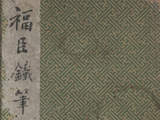 福臣鐵筆